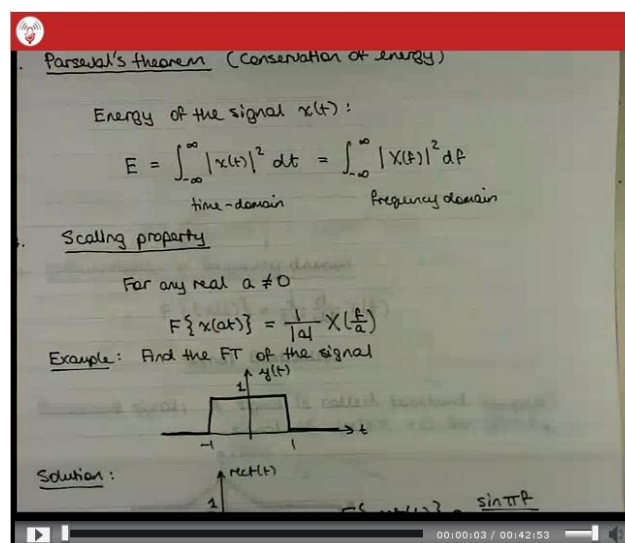 . Parseval's theorem (Conservation of energy)
Energy of the signal x(t):
E = ∫_{-∞}^{∞} |x(t)|² dt = ∫_{-∞}^{∞} |X(f)|² df
time-domain frequency domain
. Scaling property
For any real a ≠ 0
F{x(at)} = 1/|a| X(f/a)
Example: Find the FT of the signal
y(t)
1
-1 1 t
Solution: rect(t)
1 sin πf
00:00:03 / 00:42:53